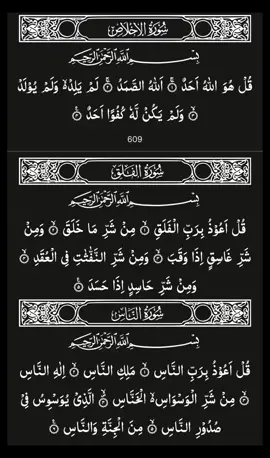 سُوْرَةُ الْاِخْلَاصِ
بِسْمِ اللّٰهِ الرَّحْمٰنِ الرَّحِيْمِ
قُلْ هُوَ اللّٰهُ اَحَدٌ ۝ اَللّٰهُ الصَّمَدُ ۝ لَمْ يَلِدْ ۙ۬ وَلَمْ يُوْلَدْ
۝ وَلَمْ يَكُنْ لَّهٗ كُفُوًا اَحَدٌ ۝
609
سُوْرَةُ الْفَلَقِ
بِسْمِ اللّٰهِ الرَّحْمٰنِ الرَّحِيْمِ
قُلْ اَعُوْذُ بِرَبِّ الْفَلَقِ ۝ مِنْ شَرِّ مَا خَلَقَ ۝ وَمِنْ
شَرِّ غَاسِقٍ اِذَا وَقَبَ ۝ وَمِنْ شَرِّ النَّفّٰثٰتِ فِي الْعُقَدِ ۝
وَمِنْ شَرِّ حَاسِدٍ اِذَا حَسَدَ ۝
سُوْرَةُ النَّاسِ
بِسْمِ اللّٰهِ الرَّحْمٰنِ الرَّحِيْمِ
قُلْ اَعُوْذُ بِرَبِّ النَّاسِ ۝ مَلِكِ النَّاسِ ۝ اِلٰهِ النَّاسِ
۝ مِنْ شَرِّ الْوَسْوَاسِ ۙ۬ الْخَنَّاسِ ۝ الَّذِيْ يُوَسْوِسُ فِيْ
صُدُوْرِ النَّاسِ ۝ مِنَ الْجِنَّةِ وَالنَّاسِ ۝